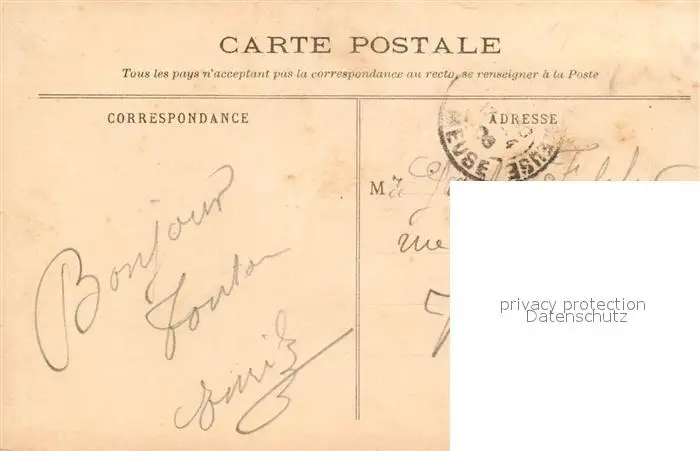 CARTE POSTALE
Tous les pays n'acceptant pas la correspondance au recto, se renseigner à la Poste
CORRESPONDANCE
ADRESSE
MEUSE
Bonjour
Tonton
M
rue
privacy protection
Datenschutz